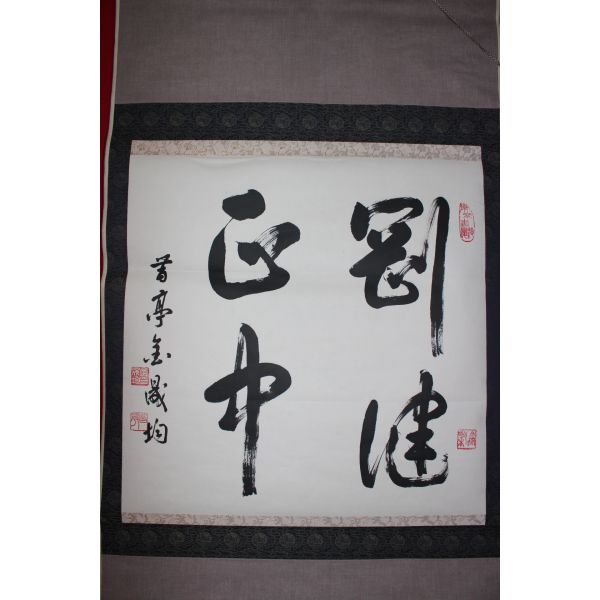 剛健
正中
亭金晟均